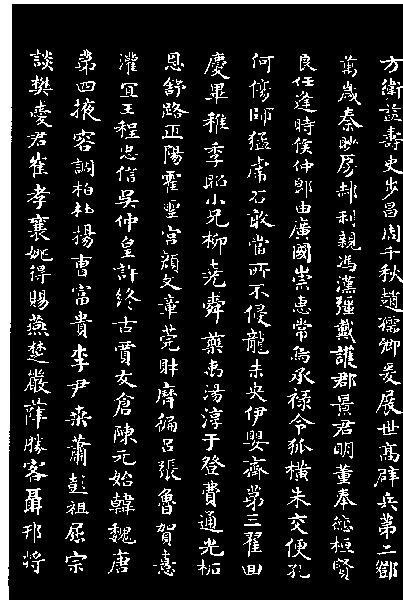 方衛益壽史步昌周千秋趙孺卿爰展世高辟兵第二鄧
萬歲秦眇房郝利親馮漢彊戴護郡景君明董奉德桓賢
良任逢時侯仲郎由廣國崇惠常烏承祿令狐橫朱交便孔
何傷師猛虎石敢當所不侵龍未央伊嬰齊第三翟回
慶畢稚季昭小兄柳堯舜藥禹湯淳于登費通光柘
恩舒路正陽霍聖宮顏文章莞財歷偏呂張魯賀憙
灌宜王程忠信吳仲皇許終古賈友倉陳元始韓魏唐
第四掖容調柏杜揚曹富貴李尹桑蕭彭祖屈宗
談樊愛君崔孝襄姚得賜燕楚嚴薛勝客聶邗將